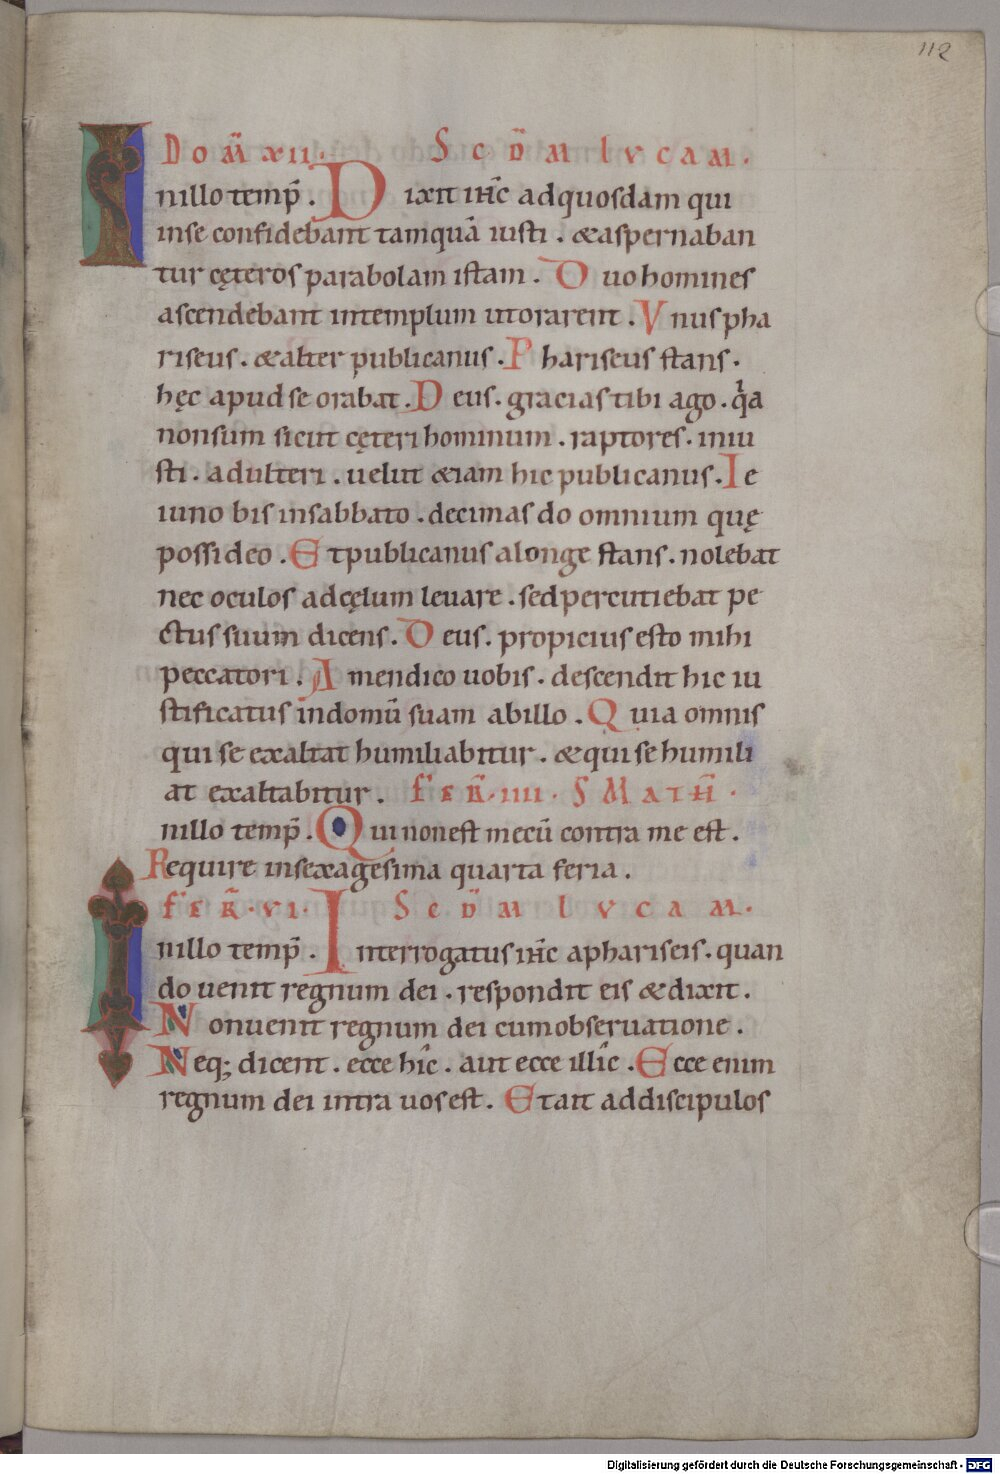 112
Dom̄ xii. Scd̄m lucam.
Inillo temp̄. Dixit ih̄c adquosdam qui
inse confidebant tamquā iusti. &aspernaban
tur cęteros parabolam istam. Duo homines
ascendebant intemplum utorarent. Vnus pha
riseus. &alter publicanus. Phariseus stans.
hęc apud se orabat. Deus. gracias tibi ago. qꝛa
nonsum sicut cęteri hominum. raptores. iniu
sti. adulteri. uelut &iam hic publicanus. Ie
iuno bis insabbato. decimas do omnium quę
possideo. Et publicanus alonge stans. nolebat
nec oculos adcęlum leuare. sed percutiebat pe
ctus suum dicens. Deus. propicius esto mihi
peccatori. Amendico uobis. descendit hic iu
stificatus indomū suam abillo. Quia omnis
qui se exaltat humiliabitur. &qui se humili
at exaltabitur. fer̄. iiii. S Math̄.
nillo temp̄. Qui nonest mecū contra me est.
Require insexagesima quarta feria.
fer̄. vi. Scd̄m lucam.
Inillo temp̄. Interrogatus ih̄c aphariseis. quan
do uenit regnum dei. respondit eis &dixit.
Nonuenit regnum dei cumobseruatione.
Neq; dicent. ecce hîc. aut ecce illîc. Ecce enim
regnum dei intra uos est. Et ait addiscipulos
Digitalisierung gefördert durch die Deutsche Forschungsgemeinschaft - DFG